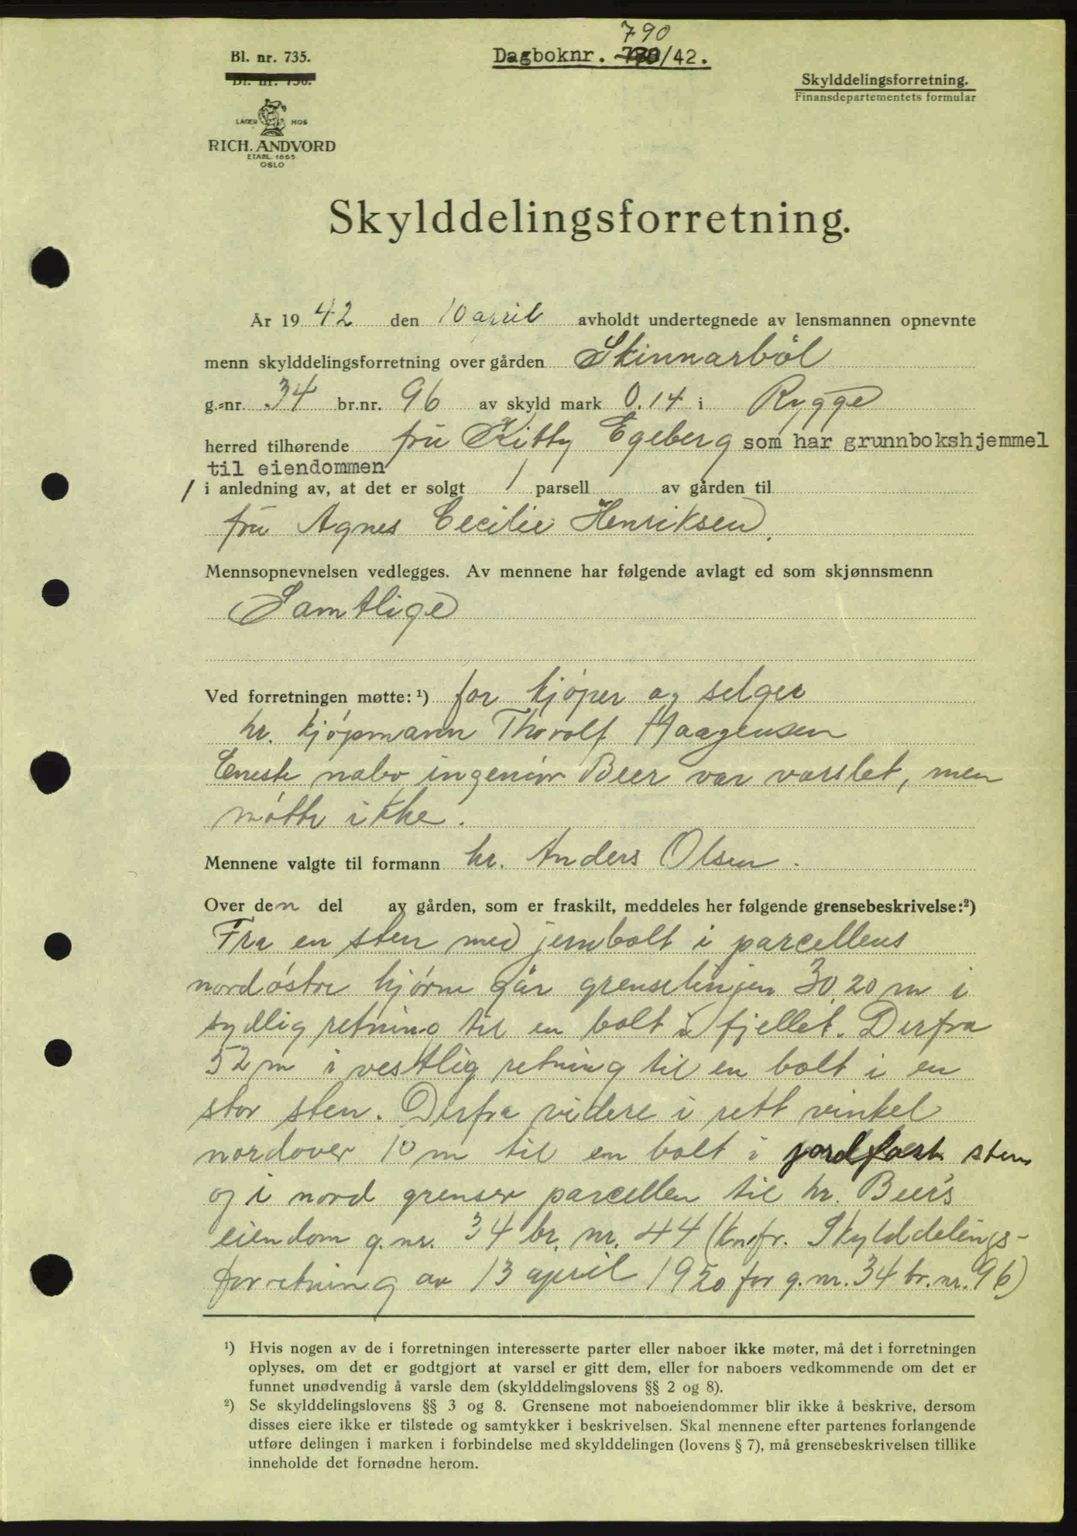 790
Dagboknr. 780/42.
Bl. nr. 735.
Bl. nr. 736.
Skylddelingsforretning.
Finansdepartementets formular
LAGER HOS
RICH. ANDVORD
ETABL. 1865
OSLO
Skylddelingsforretning.
År 1942 den 10 april avholdt undertegnede av lensmannen opnevnte
menn skylddelingsforretning over gården Skinnarböl
g.-nr. 34 br.nr. 96 av skyld mark 0.14 i Rygge
herred tilhørende fru Kitty Egeberg som har grunnbokshjemmel
til eiendommen
/ i anledning av, at det er solgt 1 parsell av gården til
fru Agnes Cecilie Henriksen.
Mennsopnevnelsen vedlegges. Av mennene har følgende avlagt ed som skjønnsmenn
Samtlige
Ved forretningen møtte: ¹) for kjöper og selger
hr. kjöpmann Thorolf Haagensen
Eneste nabo ingeniör Beer var varslet, men
mötte ikke.
Mennene valgte til formann hr. Anders Olsen.
Over den del av gården, som er fraskilt, meddeles her følgende grensebeskrivelse:²)
Fra en sten med jernbolt i parcellens
nordöstre hjörne går grenselinjen 30.20 m i
sydlig retning til en bolt i fjellet. Derfra
52 m i vestlig retning til en bolt i en
stor sten. Derfra videre i rett vinkel
nordover 10 m til en bolt i jordfast sten
og i nord grenser parcellen til hr. Beer's
eiendom g. nr. 34 br. nr. 44 (konfr. Skylddelings-
forretning av 13 april 1920 for g. nr. 34 br. nr. 96)
¹) Hvis nogen av de i forretningen interesserte parter eller naboer ikke møter, må det i forretningen
oplyses, om det er godtgjort at varsel er gitt dem, eller for naboers vedkommende om det er
funnet unødvendig å varsle dem (skylddelingslovens §§ 2 og 8).
²) Se skylddelingslovens §§ 3 og 8. Grensene mot naboeiendommer blir ikke å beskrive, dersom
disses eiere ikke er tilstede og samtykker i beskrivelsen. Skal mennene efter partenes forlangende
utføre delingen i marken i forbindelse med skylddelingen (lovens § 7), må grensebeskrivelsen tillike
inneholde det fornødne herom.